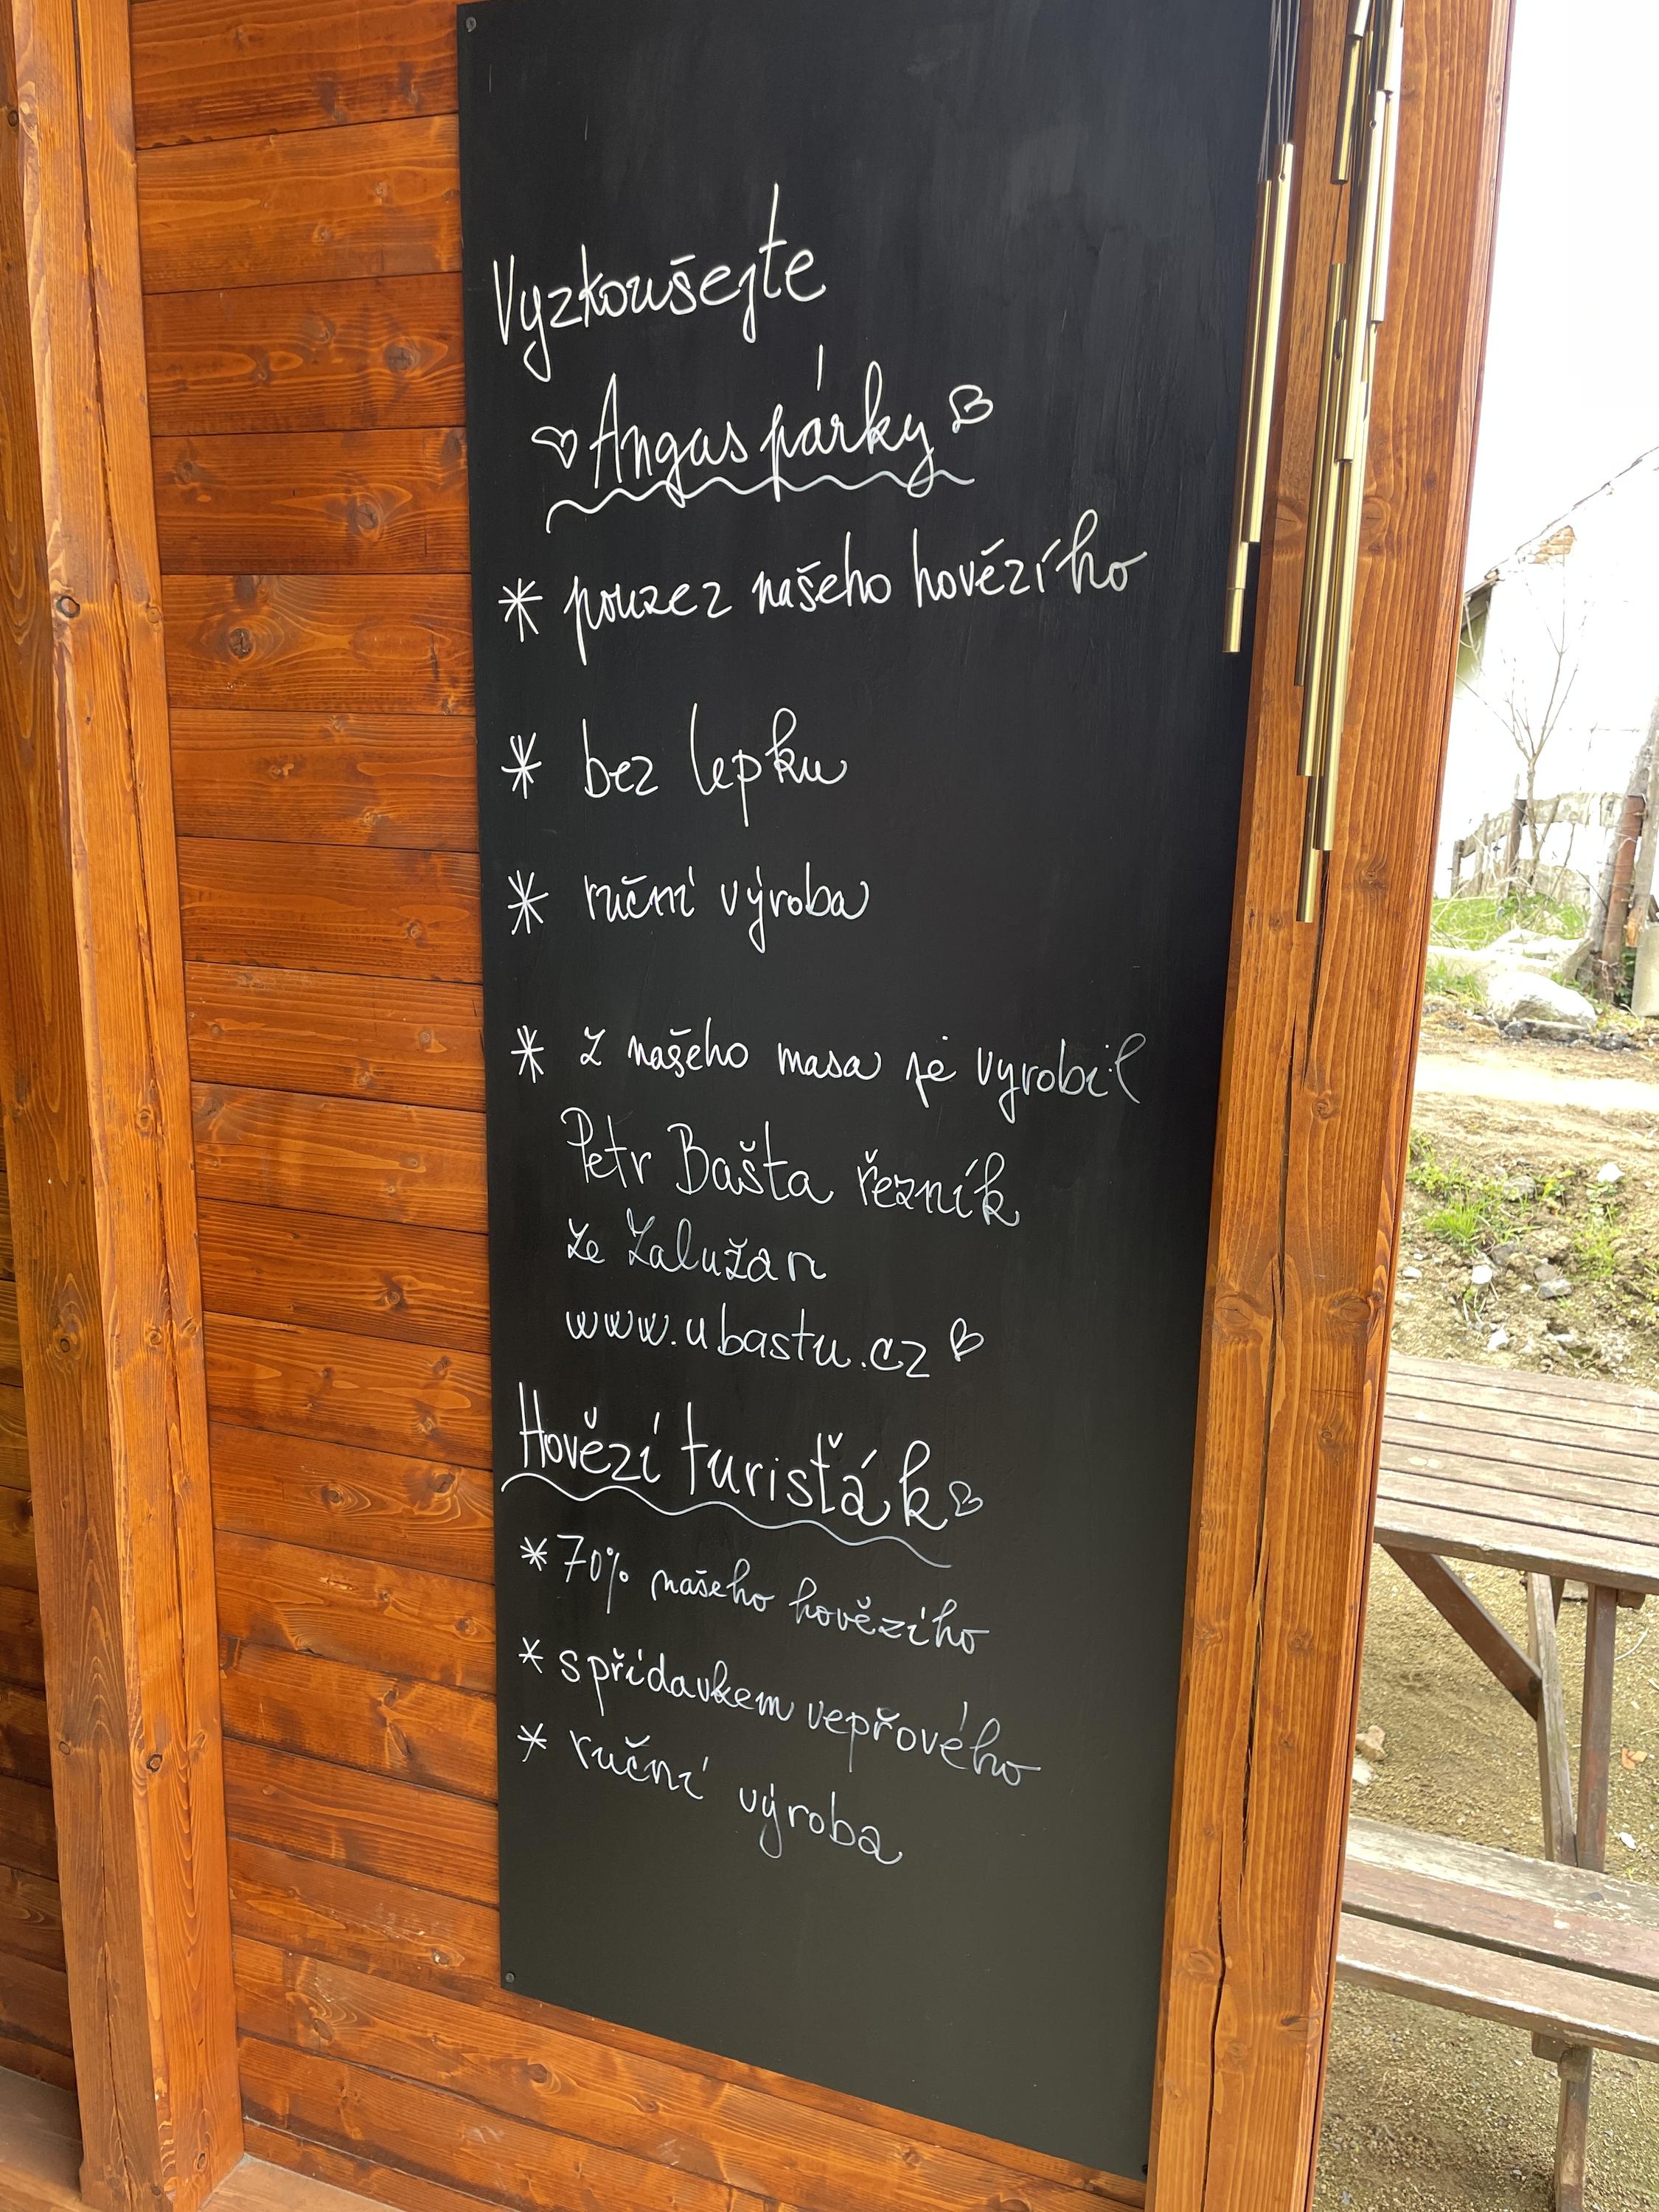 Vyzkoušejte
Angus párky
* pouze z našeho hovězího
* bez lepku
* ruční výroba
* z našeho masa je vyrobil
Petr Bašta řezník
ze Zalužan
www.ubastu.cz
Hovězí turisťák
* 70% našeho hovězího
* s přídavkem vepřového
* ruční výroba